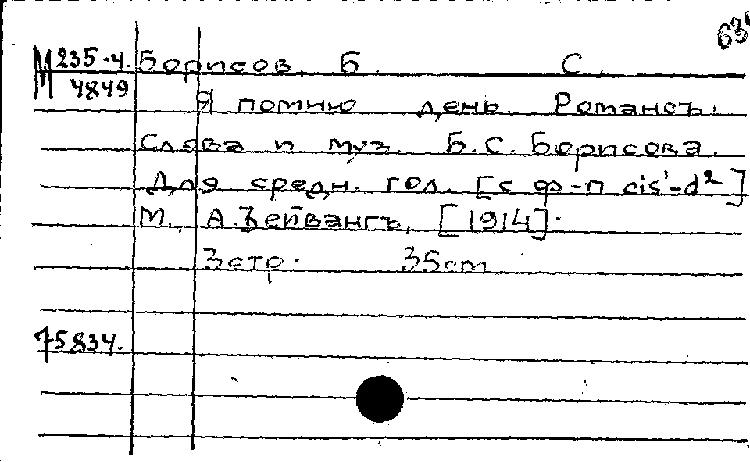 63
М 235-4. Борисов, Б. С.
4849
Я помню день. Романсъ.
Слова и муз. Б. С. Борисова.
Для средн. гол. [с ф-п cis¹-d²]
М., А. Гейвангъ, [1914].
3 стр. 35 cm
75834.